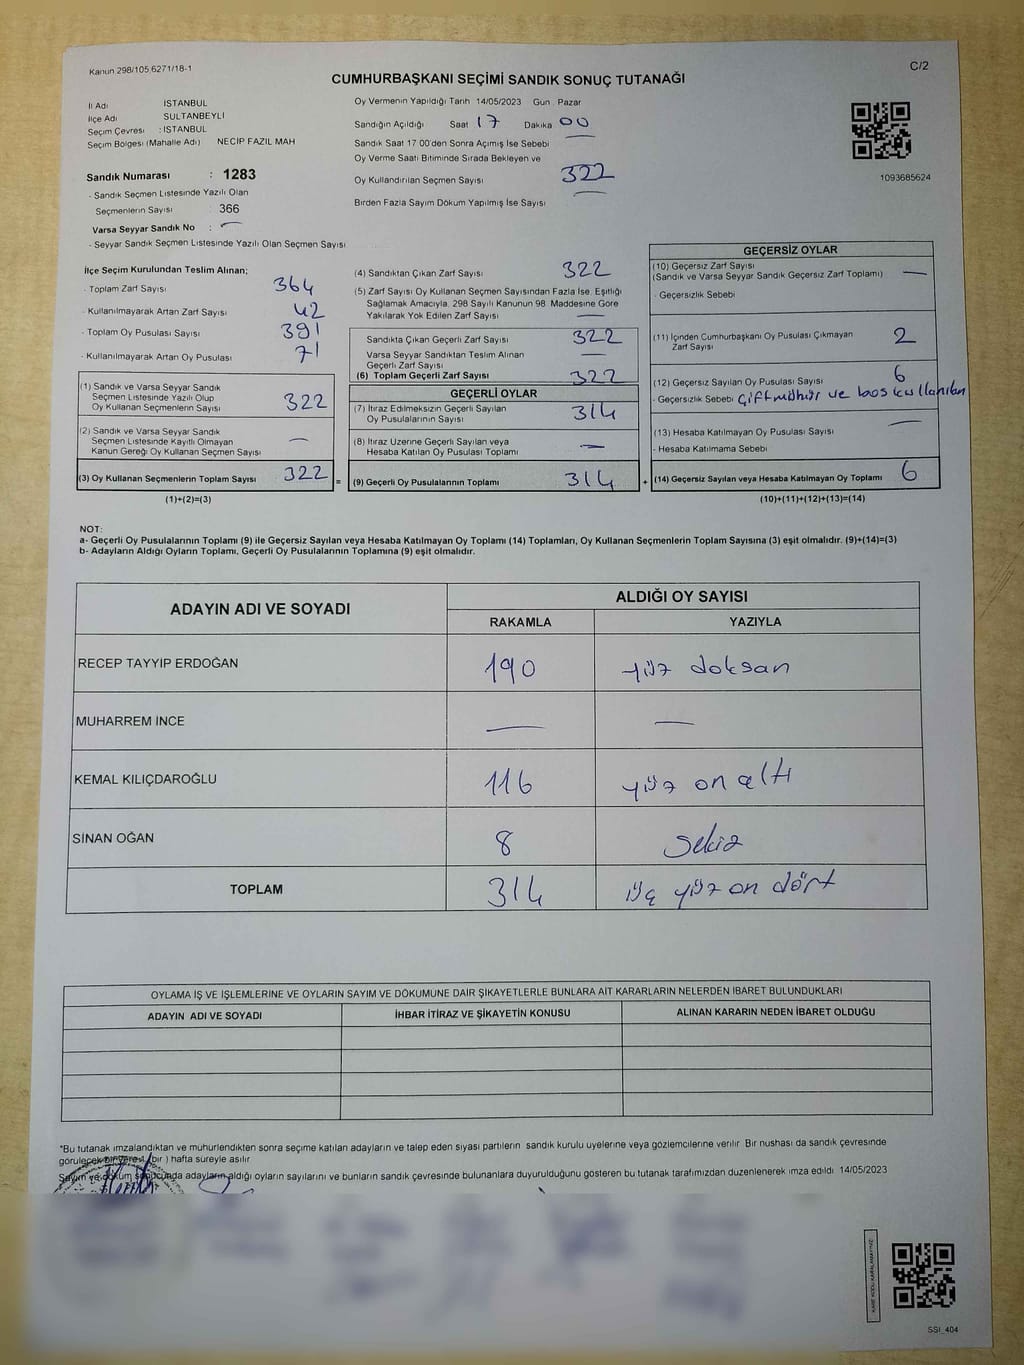 Kanun 298/105,6271/18-1
C/2
CUMHURBAŞKANI SEÇİMİ SANDIK SONUÇ TUTANAĞI
İl Adı İSTANBUL
İlçe Adı SULTANBEYLİ
Seçim Çevresi : İSTANBUL
Seçim Bölgesi (Mahalle Adı) NECİP FAZIL MAH
Sandık Numarası : 1283
- Sandık Seçmen Listesinde Yazılı Olan
Seçmenlerin Sayısı : 366
Varsa Seyyar Sandık No : —
- Seyyar Sandık Seçmen Listesinde Yazılı Olan Seçmen Sayısı
Oy Vermenin Yapıldığı Tarih 14/05/2023 Gün . Pazar
Sandığın Açıldığı Saat 17 Dakika 00
Sandık Saat 17 00'den Sonra Açımış İse Sebebi —
Oy Verme Saati Bitiminde Sırada Bekleyen ve
Oy Kullandırılan Seçmen Sayısı 322
Birden Fazla Sayım Döküm Yapılmış İse Sayısı —
1093685624
İlçe Seçim Kurulundan Teslim Alınan;
- Toplam Zarf Sayısı 364
- Kullanılmayarak Artan Zarf Sayısı 42
- Toplam Oy Pusulası Sayısı 391
- Kullanılmayarak Artan Oy Pusulası 71
(1) Sandık ve Varsa Seyyar Sandık
Seçmen Listesinde Yazılı Olup
Oy Kullanan Seçmenlerin Sayısı 322
(2) Sandık ve Varsa Seyyar Sandık
Seçmen Listesinde Kayıtlı Olmayan
Kanun Gereği Oy Kullanan Seçmen Sayısı —
(3) Oy Kullanan Seçmenlerin Toplam Sayısı 322 =
(1)+(2)=(3)
(4) Sandıktan Çıkan Zarf Sayısı 322
(5) Zarf Sayısı Oy Kullanan Seçmen Sayısından Fazla İse. Eşitliği
Sağlamak Amacıyla, 298 Sayılı Kanunun 98 Maddesine Göre
Yakılarak Yok Edilen Zarf Sayısı —
Sandıkta Çıkan Geçerli Zarf Sayısı 322
Varsa Seyyar Sandıktan Teslim Alınan
Geçerli Zarf Sayısı —
(6) Toplam Geçerli Zarf Sayısı 322
GEÇERLİ OYLAR
(7) İtiraz Edilmeksizin Geçerli Sayılan
Oy Pusulalarının Sayısı 314
(8) İtiraz Üzerine Geçerli Sayılan veya
Hesaba Katılan Oy Pusulası Toplamı —
(9) Geçerli Oy Pusulalarının Toplamı 314 +
GEÇERSİZ OYLAR
(10) Geçersiz Zarf Sayısı
(Sandık ve Varsa Seyyar Sandık Geçersiz Zarf Toplamı) —
- Geçersizlik Sebebi
(11) İçinden Cumhurbaşkanı Oy Pusulası Çıkmayan
Zarf Sayısı 2
(12) Geçersiz Sayılan Oy Pusulası Sayısı 6
- Geçersizlik Sebebi Çift mühür ve boş kullanılan
(13) Hesaba Katılmayan Oy Pusulası Sayısı —
- Hesaba Katılmama Sebebi
(14) Geçersiz Sayılan veya Hesaba Katılmayan Oy Toplamı 6
(10)+(11)+(12)+(13)=(14)
NOT:
a- Geçerli Oy Pusulalarının Toplamı (9) ile Geçersiz Sayılan veya Hesaba Katılmayan Oy Toplamı (14) Toplamları, Oy Kullanan Seçmenlerin Toplam Sayısına (3) eşit olmalıdır. (9)+(14)=(3)
b- Adayların Aldığı Oyların Toplamı, Geçerli Oy Pusulalarının Toplamına (9) eşit olmalıdır.
ADAYIN ADI VE SOYADI ALDIĞI OY SAYISI
RAKAMLA YAZIYLA
RECEP TAYYIP ERDOĞAN 190 yüz doksan
MUHARREM İNCE — —
KEMAL KILIÇDAROĞLU 116 yüz on altı
SİNAN OĞAN 8 sekiz
TOPLAM 314 üç yüz on dört
OYLAMA İŞ VE İŞLEMLERİNE VE OYLARIN SAYIM VE DÖKÜMÜNE DAİR ŞİKAYETLERLE BUNLARA AİT KARARLARIN NELERDEN İBARET BULUNDUKLARI
ADAYIN ADI VE SOYADI İHBAR İTİRAZ VE ŞİKAYETİN KONUSU ALINAN KARARIN NEDEN İBARET OLDUĞU
*Bu tutanak imzalandıktan ve mühürlendikten sonra seçime katılan adayların ve talep eden siyasi partilerin sandık kurulu üyelerine veya gözlemcilerine verilir Bir nüshası da sandık çevresinde
görülecek bir yere 1 (bir ) hafta süreyle asılır
Sayım ve döküm sonucunda adayların aldığı oyların sayılarını ve bunların sandık çevresinde bulunanlara duyurulduğunu gösteren bu tutanak tarafımızdan düzenlenerek imza edildi 14/05/2023
KARE KODU KARALAMAYINIZ!
SSI_404